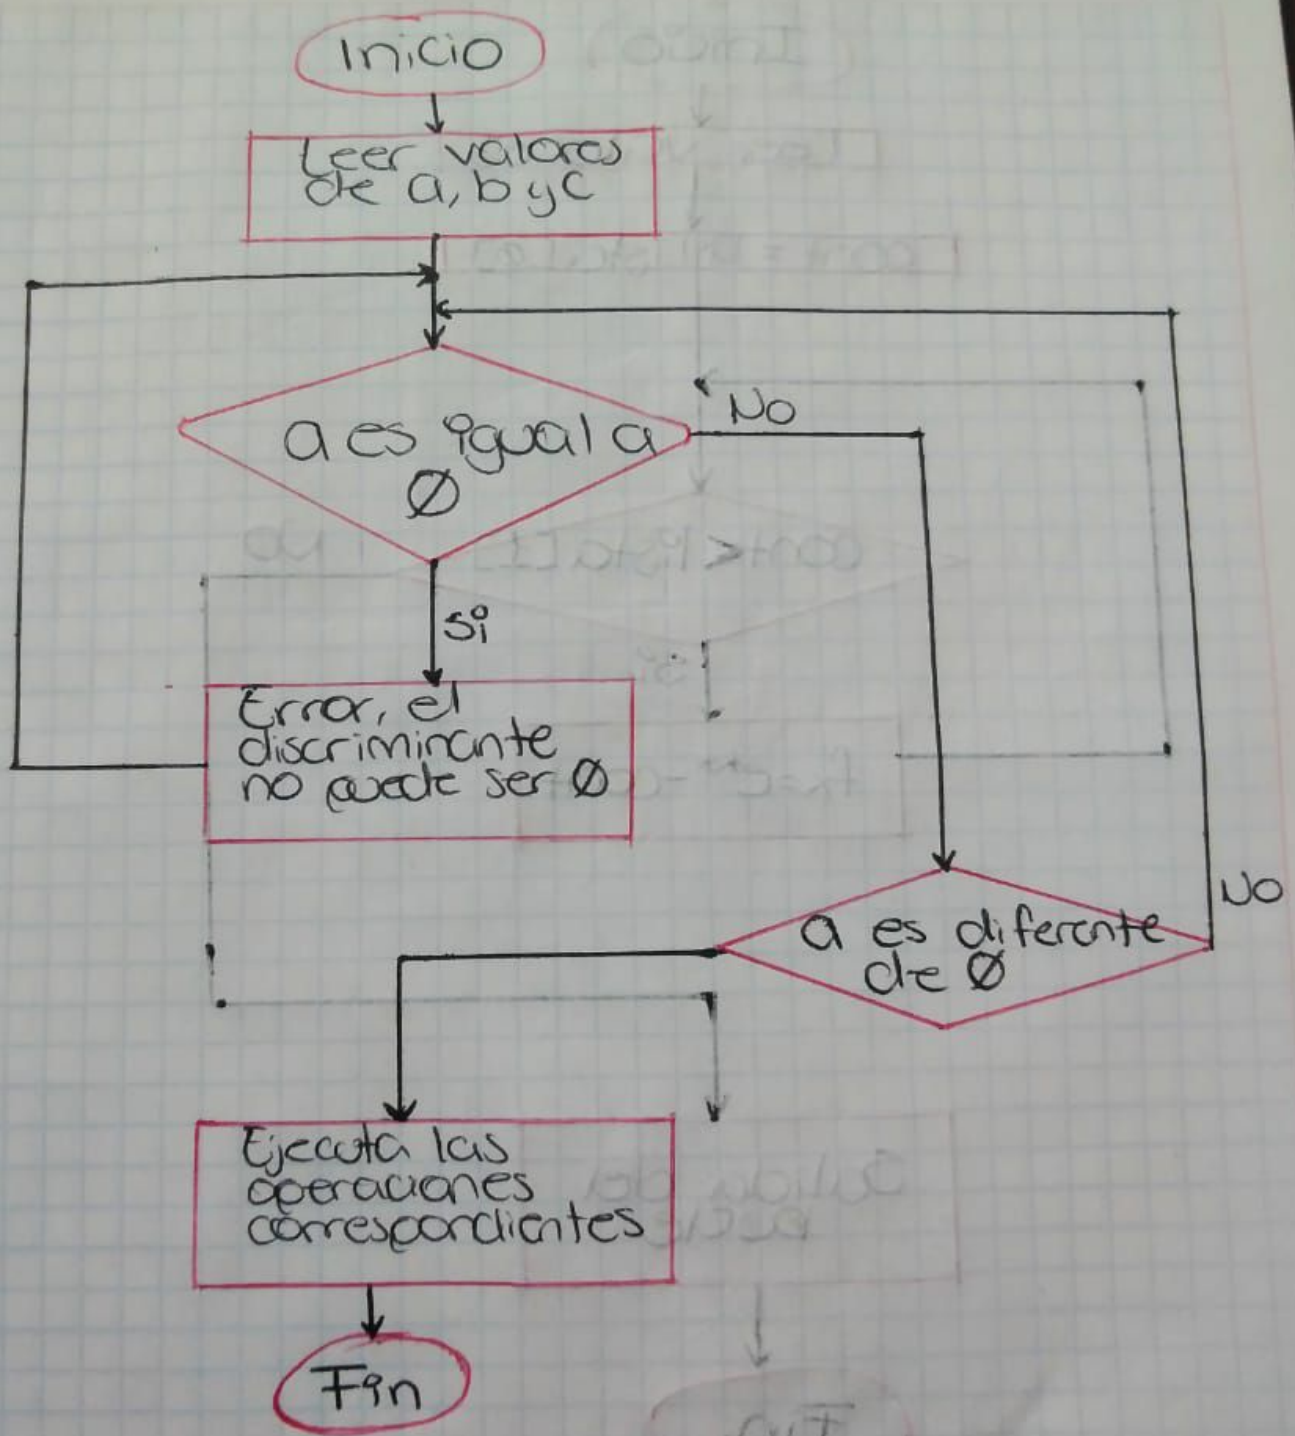 Inicio
Leer valores
de a, b y c
a es igual a
Ø
No
Si
Error, el
discriminante
no puede ser Ø
a es diferente
de Ø
NO
Ejecuta las
operaciones
correspondientes
Fin